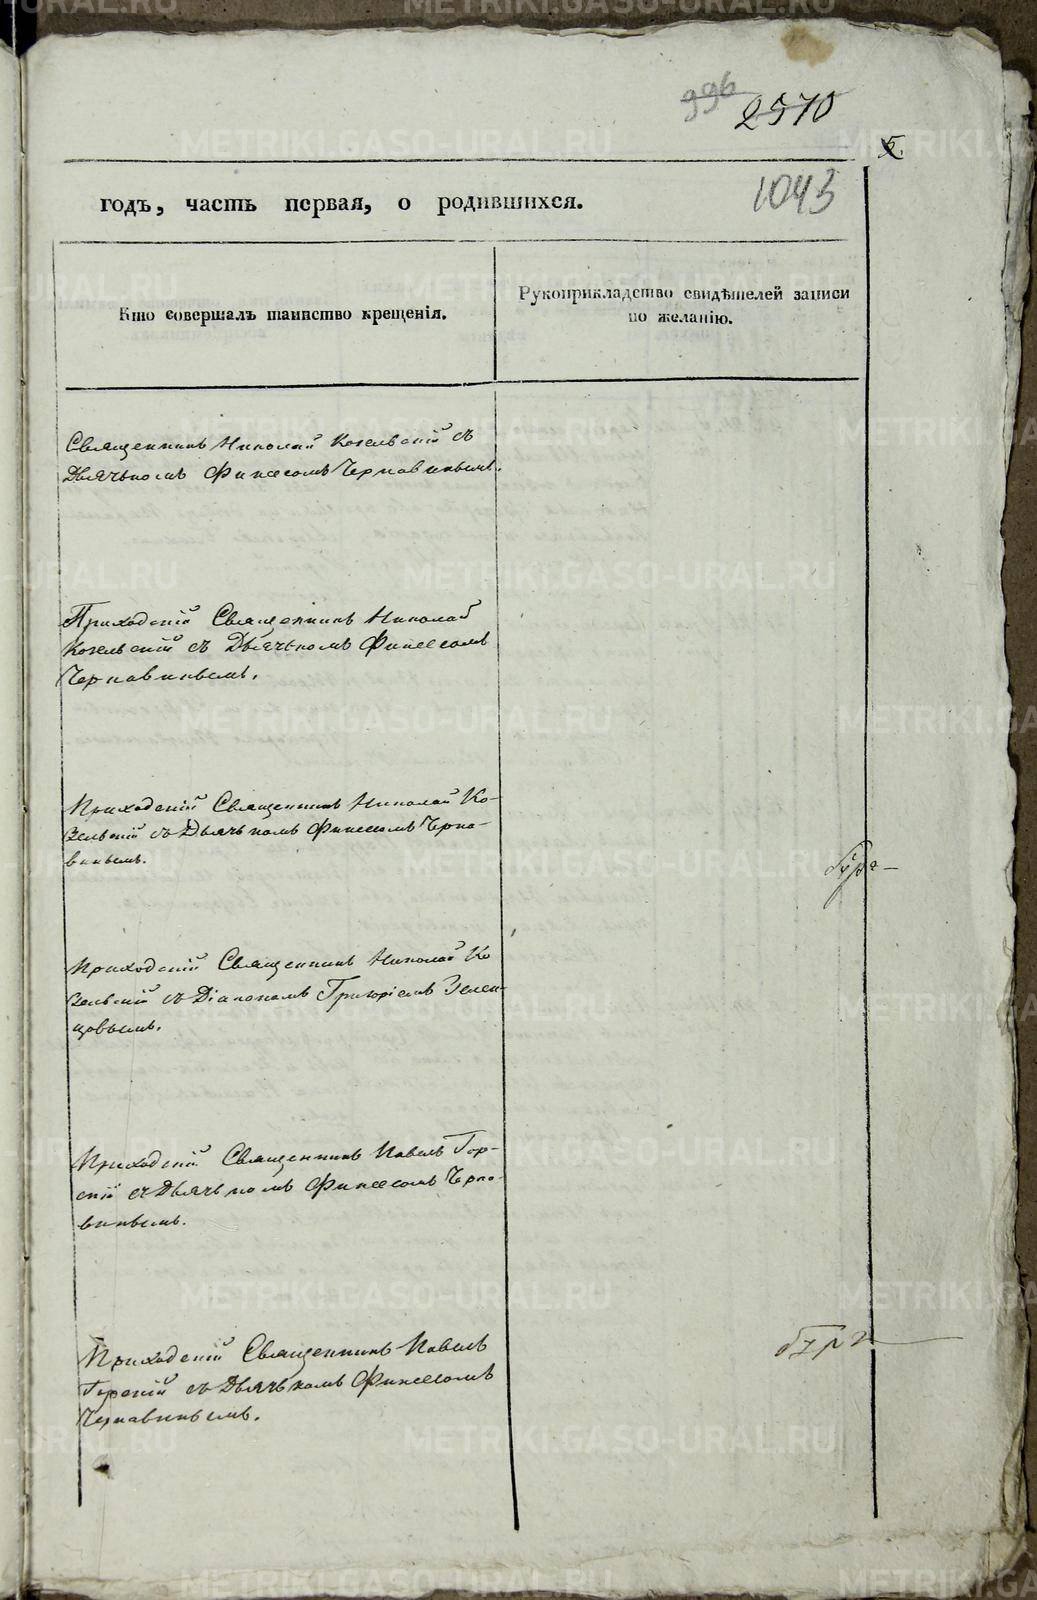 996
2570
5.
годъ, часть первая, о родившихся.
1043
Кто совершалъ таинство крещенія.
Рукоприкладство свидѣтелей записи
по желанію.
Священникъ Николай Козельскій съ
Дьячькомъ Финеесомъ Чернавинымъ.
Приходскій Священникъ Николай
Козельскій съ Дьячькомъ Финеесомъ
Чернавинымъ.
Приходскій Священникъ Николай Ко-
зельскій съ Дьячькомъ Финеесомъ Черна-
винымъ.
Приходскій Священникъ Николай Ко
зельскій съ Діакономъ Григоріемъ Зелен-
цовымъ.
Приходскій Священникъ Павелъ Гор-
скій съ Дьячькомъ Финеесомъ Черна-
винымъ.
Приходскій Священникъ Павелъ
Горскій съ Дьячькомъ Финеесомъ
Чернавинымъ.
METRIKI.GASO-URAL.RU